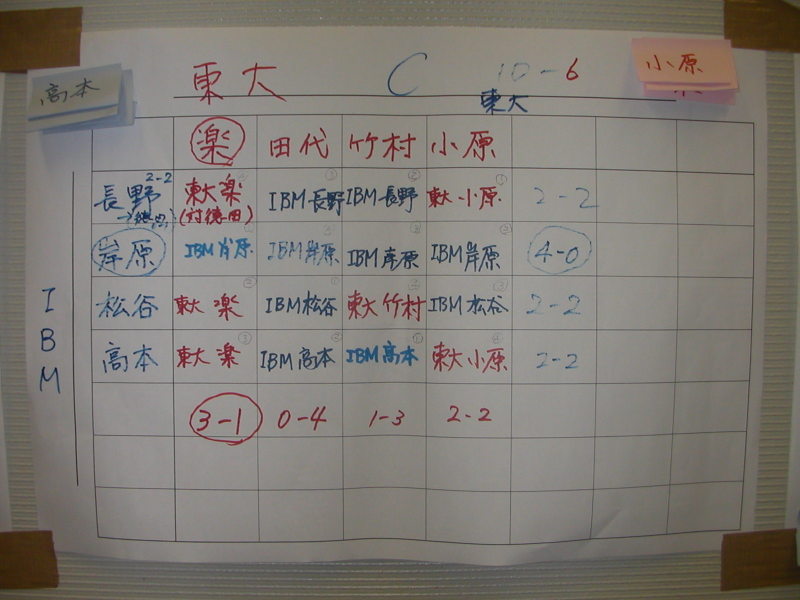 東大 C 10-6
東大
高本
小原
楽 田代 竹村 小原
長野 2-2 東大楽 (対徳田) IBM長野 IBM長野 東大小原 2-2
岸原 IBM岸原 IBM岸原 IBM岸原 IBM岸原 4-0
松谷 東大楽 IBM松谷 東大竹村 IBM松谷 2-2
高本 東大楽 IBM高本 IBM高本 東大小原 2-2
3-1 0-4 1-3 2-2
IBM